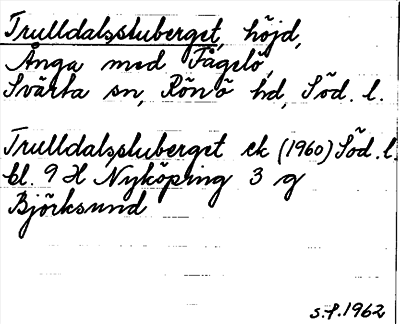 Trulldalsstuberget, höjd,
Ånga med Fågelö,
Svärta sn, Rönö hd, Söd. l.
Trulldalsstuberget ek (1960) Söd. l.
bl. 9 H Nyköping 3 g
Björksund
s.f. 1962